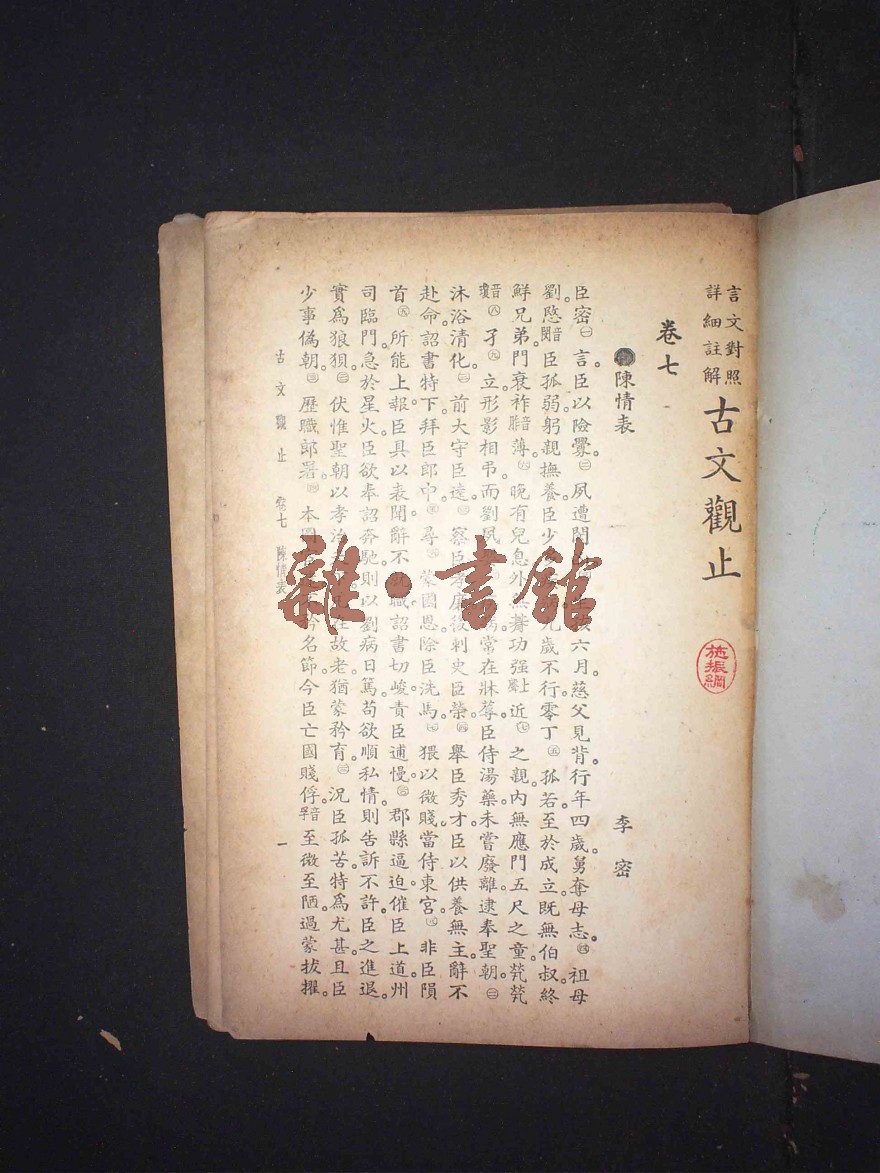 言文對照
詳細註解
古文觀止
施振綱
卷七
陳情表
李密
臣密㊀言臣以險釁㊁夙遭閔六月慈父見背行年四歲舅奪母志㊃祖母
劉愍音閔臣孤弱躬親撫養臣少歲不行零丁㊄孤若至於成立既無伯叔終
鮮兄弟門衰祚薄㊅晚有兒息外無朞功强近㊆之親內無應門五尺之童煢煢
㊇孑㊈立形影相弔而劉夙常在牀蓐臣侍湯藥未嘗廢離逮奉聖朝
沐浴清化前大守臣逵察臣孝廉後刺史臣榮舉臣秀才臣以供養無主辭不
赴命詔書特下拜臣郎中尋蒙國恩除臣洗馬猥以微賤當侍東宮非臣隕
首所能上報臣具以表聞辭不就職詔書切峻責臣逋慢郡縣逼迫催臣上道州
司臨門急於星火臣欲奉詔奔馳則以劉病日篤苟欲順私情則告訴不許臣之進退
實爲狼狽伏惟聖朝以孝治在故老猶蒙矜育況臣孤苦特爲尤甚且臣
少事僞朝歷職郎署本圖矜名節今臣亡國賤俘音孚至微至陋過蒙拔擢
古文觀止 卷七 陳情表 一
雜·書館